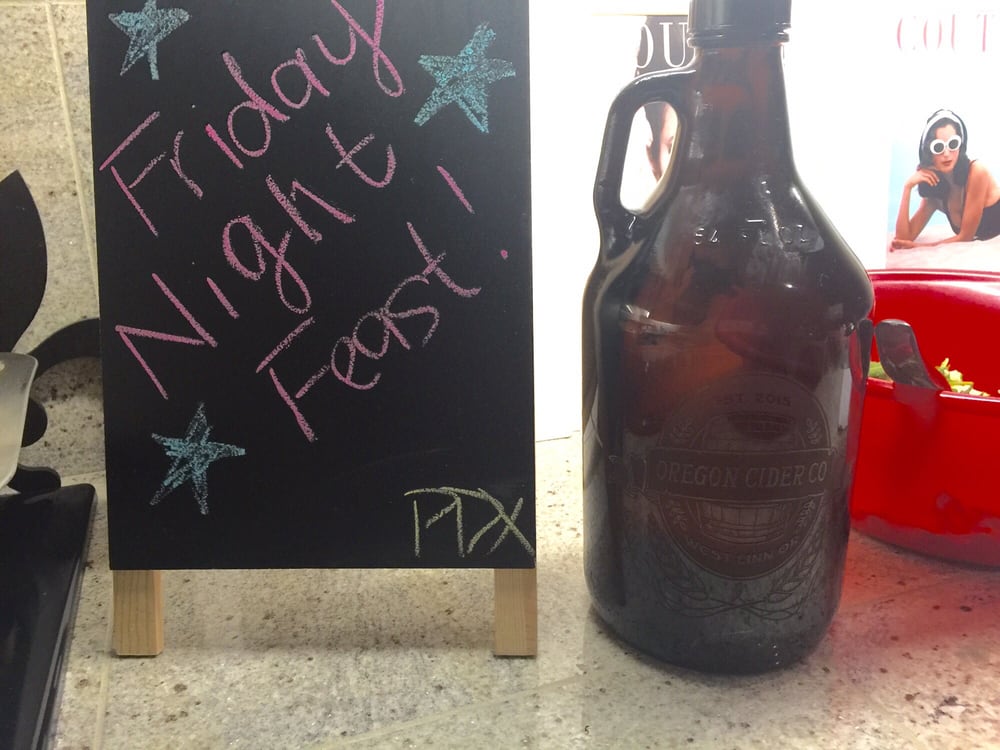 Friday
Night
Feast!
PDX
OU
COUT
64 FL OZ
EST. 2015
OREGON CIDER CO
WEST LINN OR